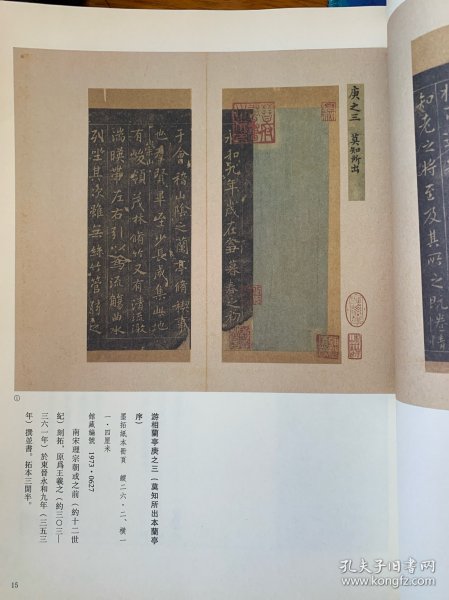 庚之三　莫知所出
永和九年歲在
暮春之初
于會稽山陰之蘭亭脩稧事
也羣賢畢至少長咸集此地
有峻領茂林脩竹又有清流激
湍暎帶左右引以為流觴曲水
列坐其次雖無絲竹管弦之
知老之將至及其所之既惓情
①
游相蘭亭庚之三（莫知所出本蘭亭
序）
墨拓紙本冊頁　縱二六·二、橫一
一·四厘米
館藏編號　1973·0627
南宋理宗朝或之前（約十二世
紀）刻拓。原爲王羲之（約三〇三—
三六一年）於東晉永和九年（三五三
年）撰並書。拓本三開半。
15
孔夫子旧书网